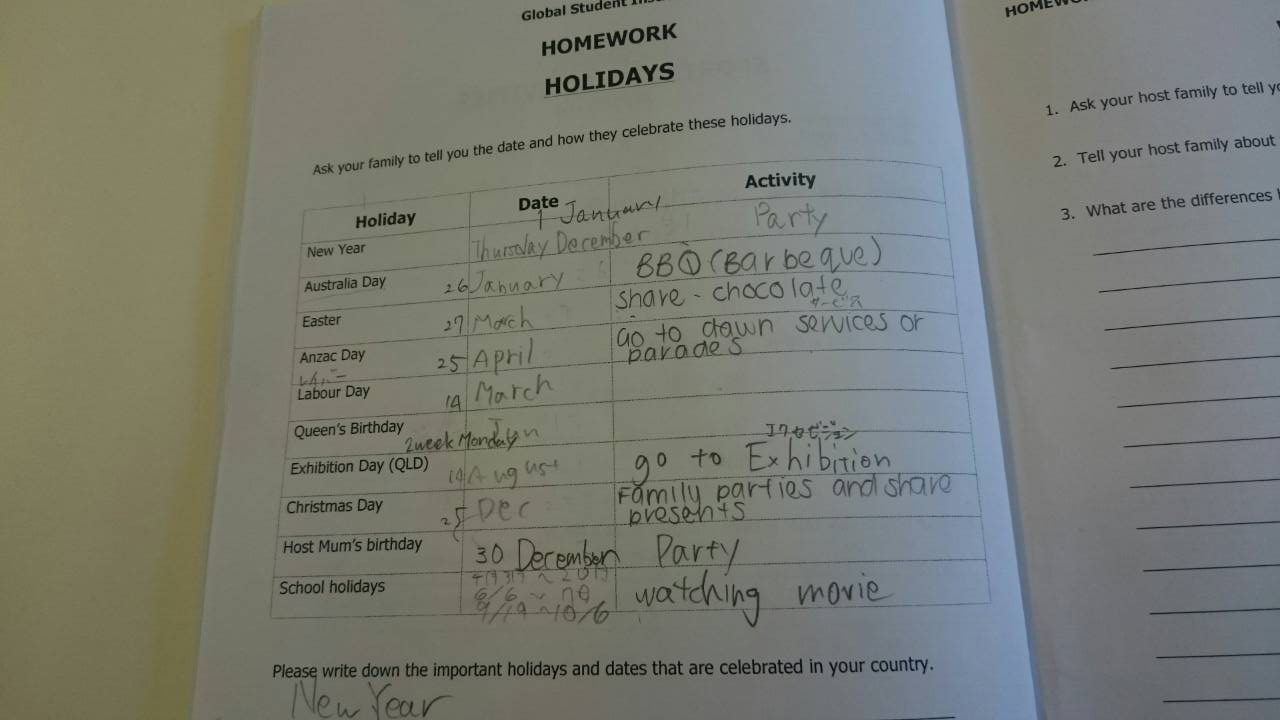 Global Student
HOMEWORK
HOLIDAYS
Ask your family to tell you the date and how they celebrate these holidays.
Holiday Date Activity
1 January
New Year Thursday December Party
Australia Day 26 January BBQ (Barbeque)
Easter 27 March share - chocolate
サービス
Anzac Day 25 April Go to dawn services or
parades
Labour Day 14 March
Queen's Birthday 2week Monday Jun
エクセビジョン
Exhibition Day (QLD) 14 August go to Exhibition
Christmas Day 25 Dec Family parties and share
presents
Host Mum's birthday 30 December Party
School holidays watching movie
9/19 ~ 10/6
Please write down the important holidays and dates that are celebrated in your country.
New Year
1. Ask your host family to tell
2. Tell your host family about
3. What are the differences